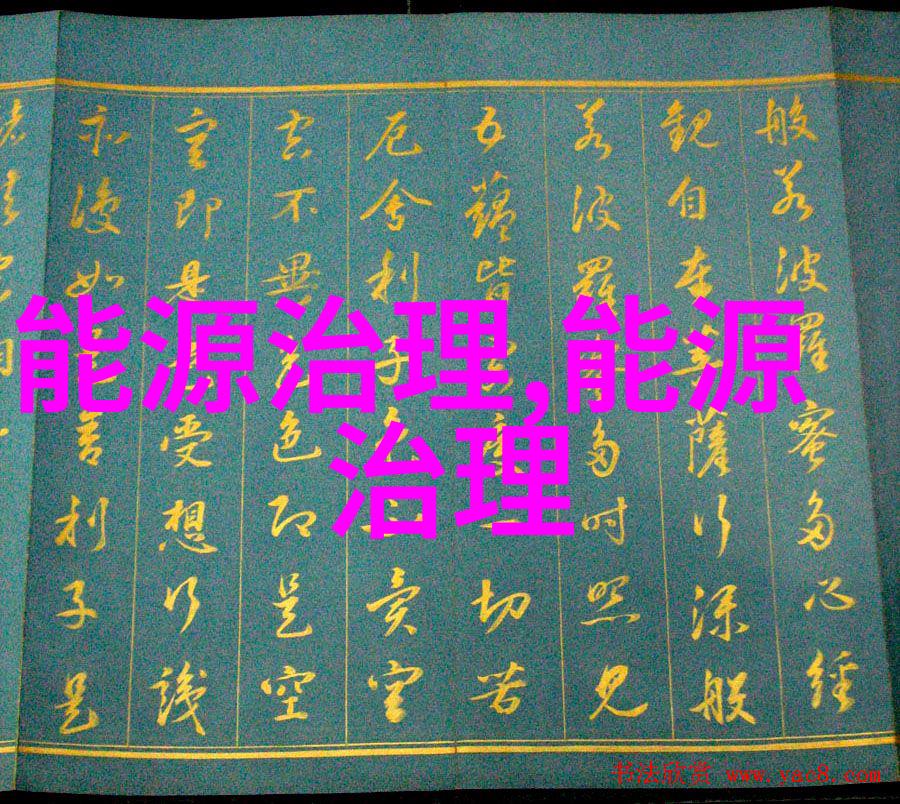 能源治理,能源
治理
般若波羅蜜多心經
觀自在菩薩行深般
若波羅多時照見
五蘊皆空度一切苦
厄舍利子色不異空
空不異色色即是空
空即是色受想行識
亦復如是舍利子是
书法欣赏 www.yac8.com